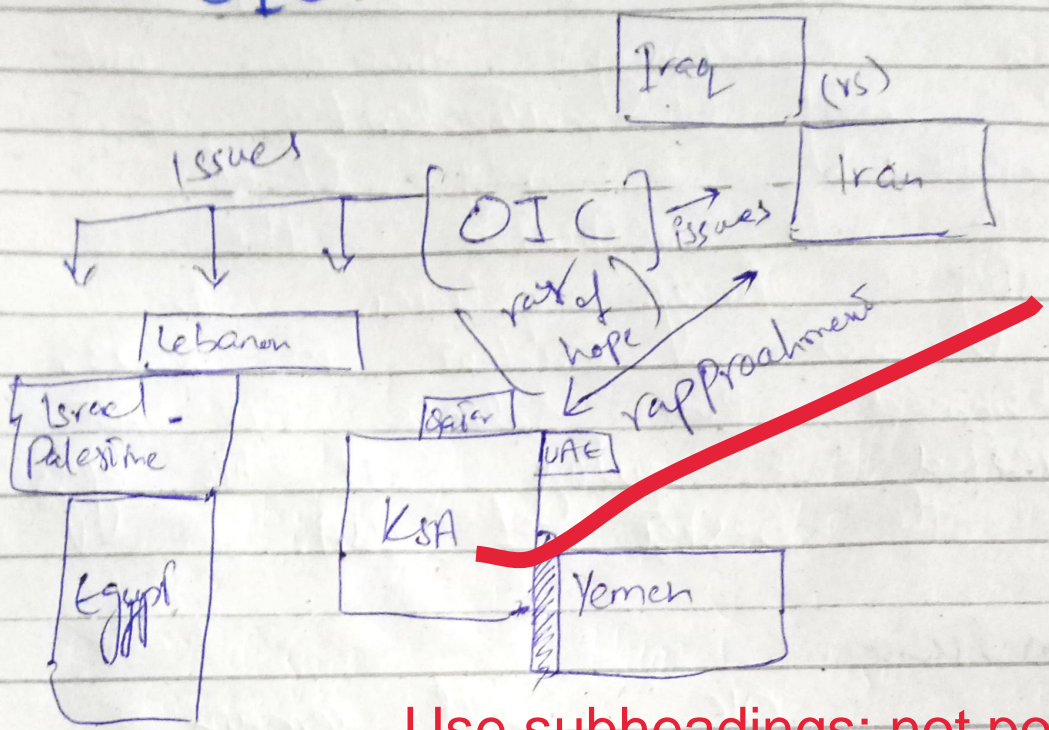 Iraq
(vs)
Iran
issues
[OIC]
issues
ray of
hope)
rapproahment
Lebanon
Israel -
Palestine
Egypt
Qatar
UAE
KSA
Yemen
Use subheadings; not po